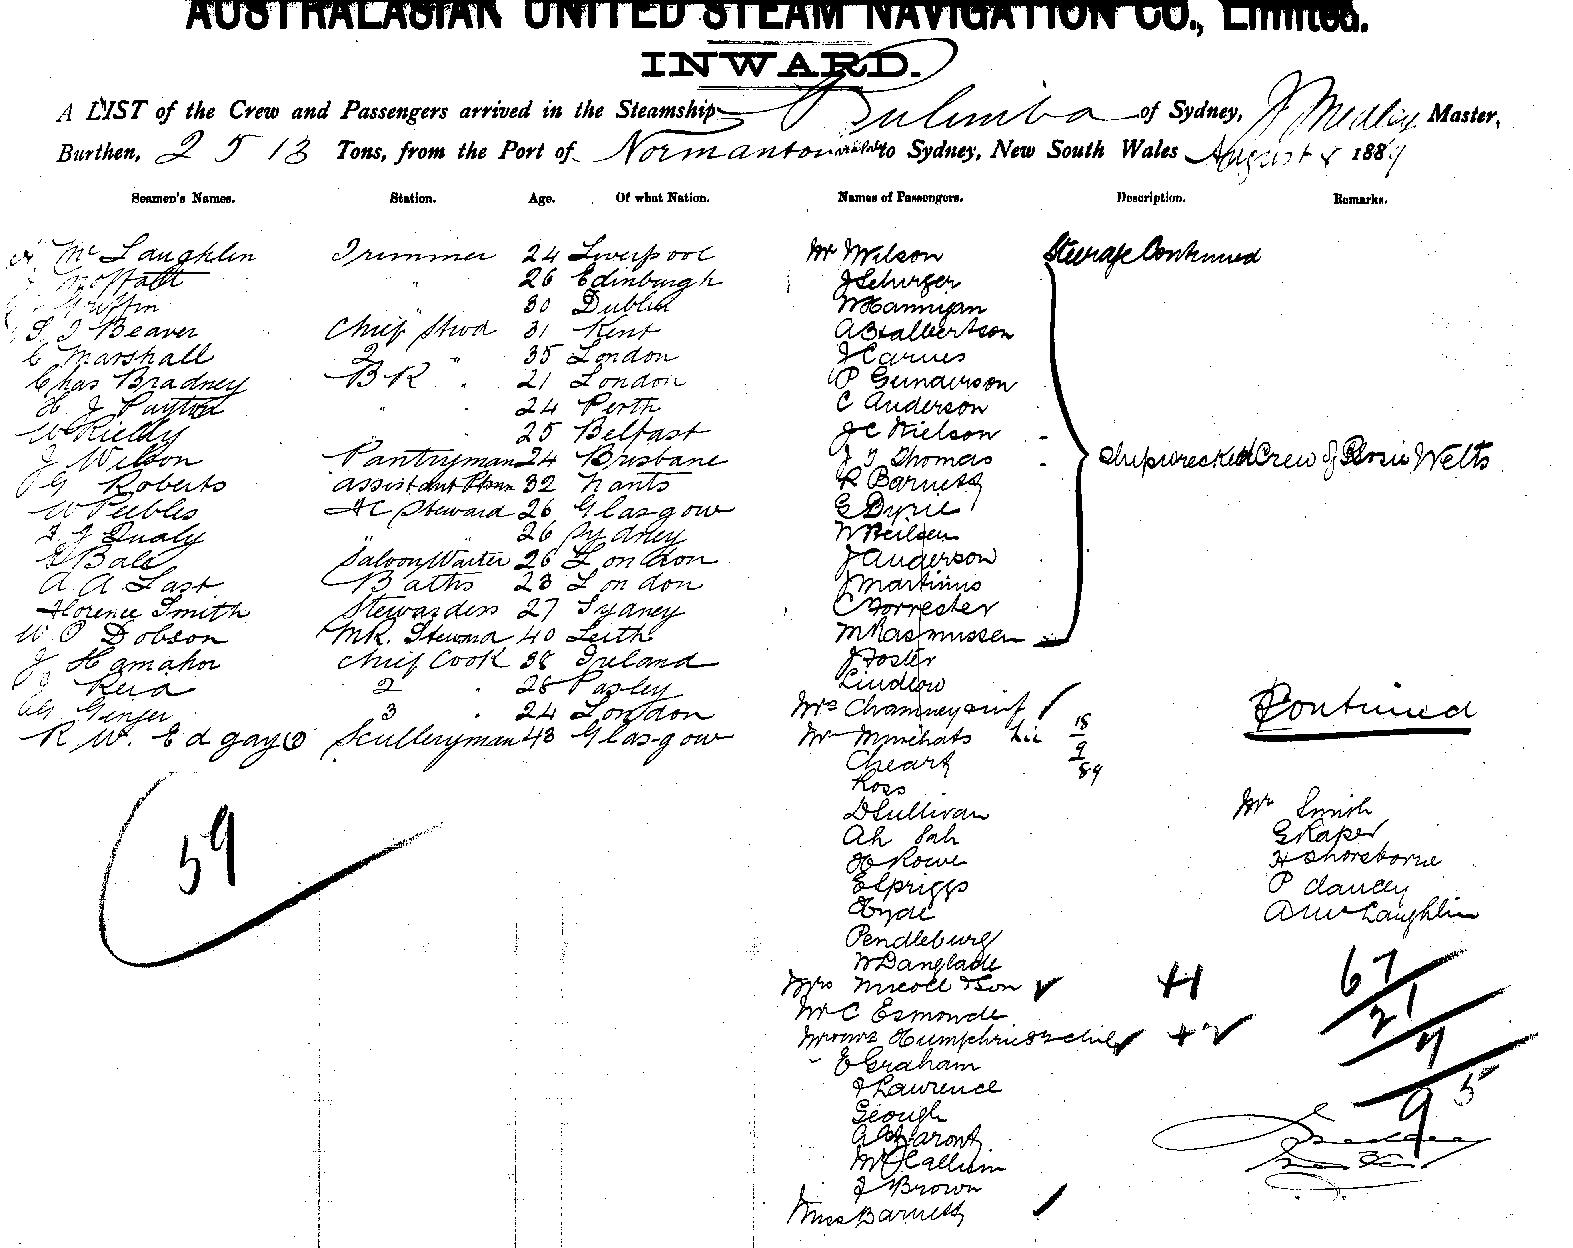 AUSTRALASIAN UNITED STEAM NAVIGATION CO., Limited.
INWARD.
A LIST of the Crew and Passengers arrived in the Steamship Pulimba of Sydney, J Medley Master,
Burthen, 2513 Tons, from the Port of Normanton to Sydney, New South Wales August 8 1889
Seamen's Names. Station. Age. Of what Nation. Names of Passengers. Description. Remarks.
Mc Laughlin Trimmer 24 Liverpool
Moffatt " 26 Edinburgh
Griffin 30 Dublin
S J Beaver Chief Stwd 31 Kent
C Marshall 2 " 35 London
Chas Bradney BR " 21 London
H J Payton " " 24 Perth
W Rielly 25 Belfast
J Wilson Pantryman 24 Brisbane
G Roberts assistant 32 Nants
W Peebles FC Steward 26 Glasgow
Dualy " " 26 Sydney
E Bale Saloon Waiter 26 London
A A Last Baths 23 London
Florence Smith Stewardess 27 Sydney
W P Dobson MR. Steward 40 Leith
J Hamahor Chief Cook 38 Ireland
J Reid 2 " 28 Pasley
Ginger 3 " 24 London
R W. Edgay Sculleryman 43 Glasgow
59
Mr Wilson Steerage Continued
J Schurfer
W Hannigan
A B Halbertson
J Carnes
P Gunderson
C Anderson
J C Nielson
J T Thomas Shipwrecked Crew of Rosie Welts
R Barnett
E Byrie
W Neilsen
J Anderson
J Martinus
C Forrester
M Rasmussen
J Foster
Lindlow
Mrs Chamney & inft
Mr Minchats
18
9
89
Cheart
Ross
D Sullivan
Ah Sah
H Rowe
E Spriggs
Hyde
Pendlebury
W Danglade
Mrs Nicoll & Son +1
Mr C Esmonde
Mr & Mrs Humphries & 2 chil +2
E Graham
J Lawrence
Geough
McCallum
J Brown
Miss Barnett
Continued
Mr Smith
G Raper
H Shorsborne
P Clancey
A McLaughlin
67
21
7
95